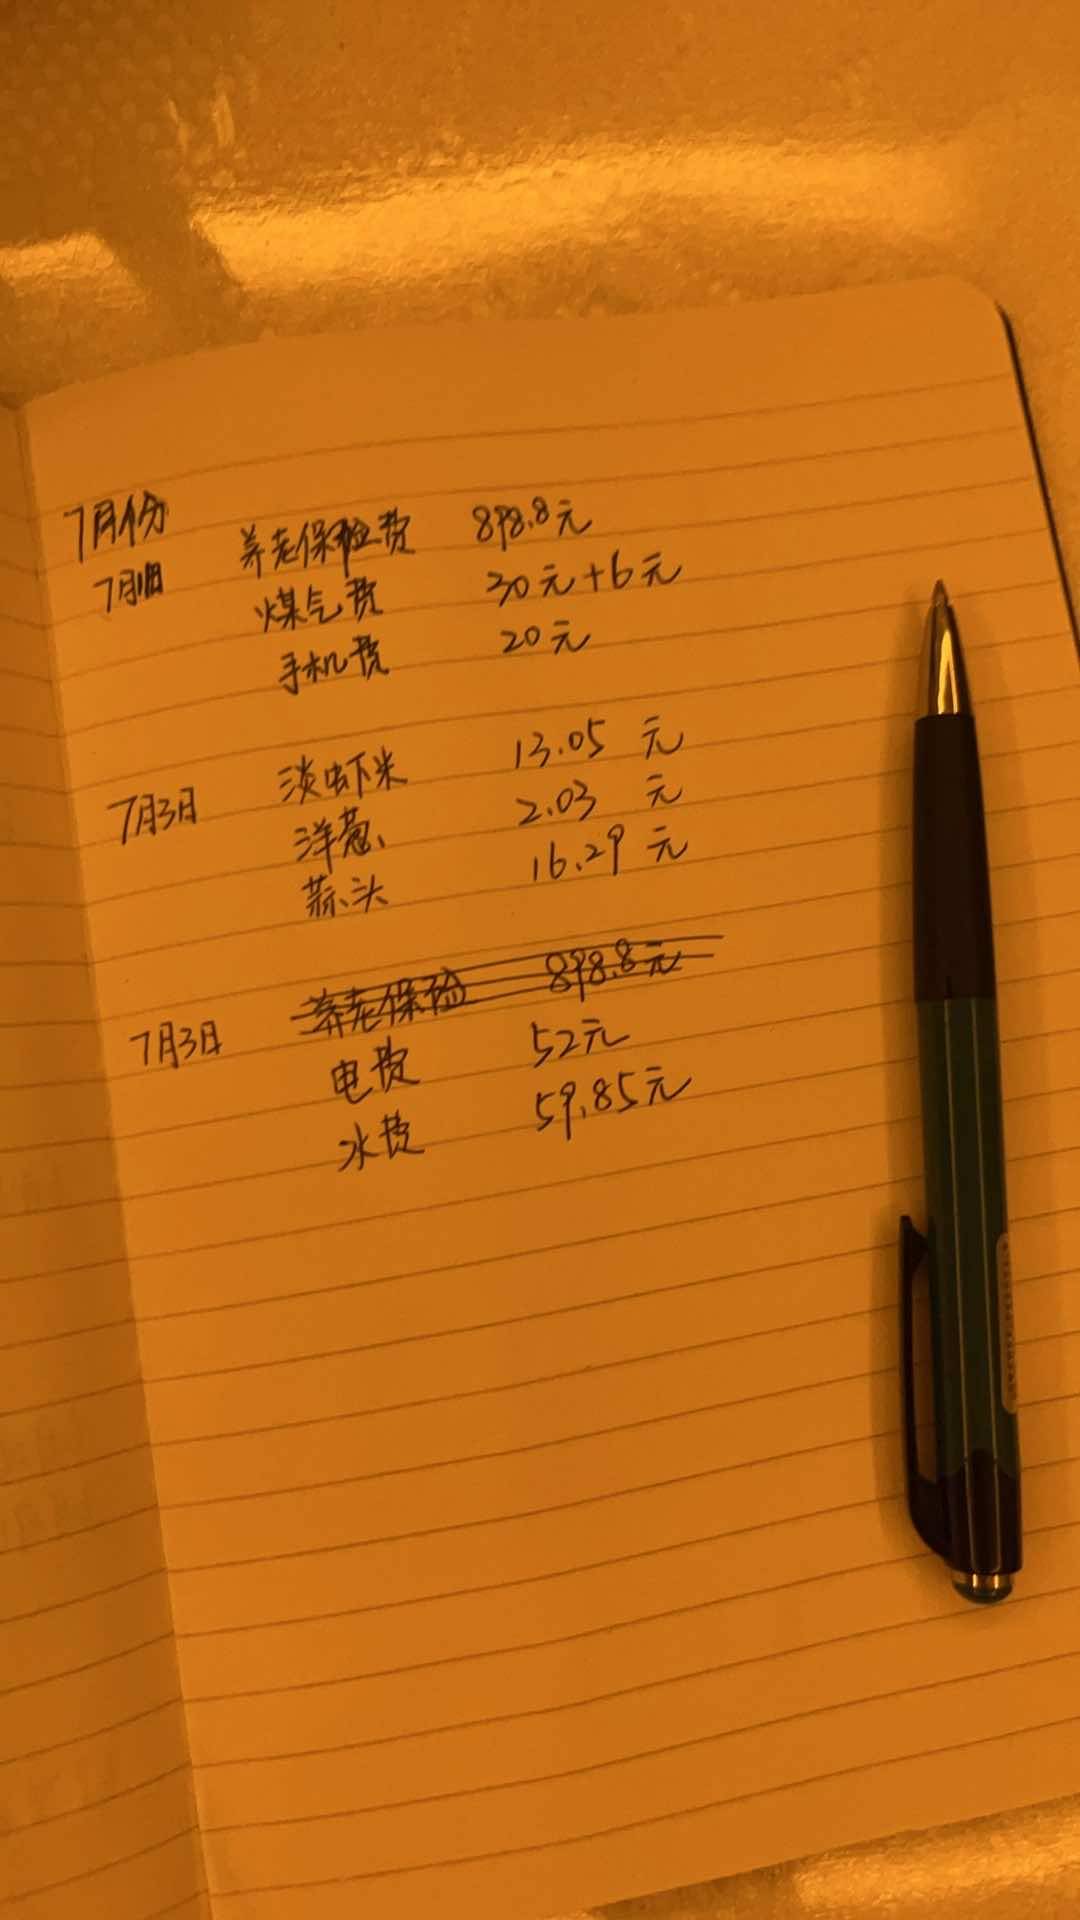 7月份
7月1日 养老保险费 898.8元
煤气费 30元+6元
手机费 20元
7月3日 淡虾米 13.05 元
洋葱 2.03 元
蒜头 16.29 元
养老保险 898.8元
7月3日 电费 52元
水费 59.85元